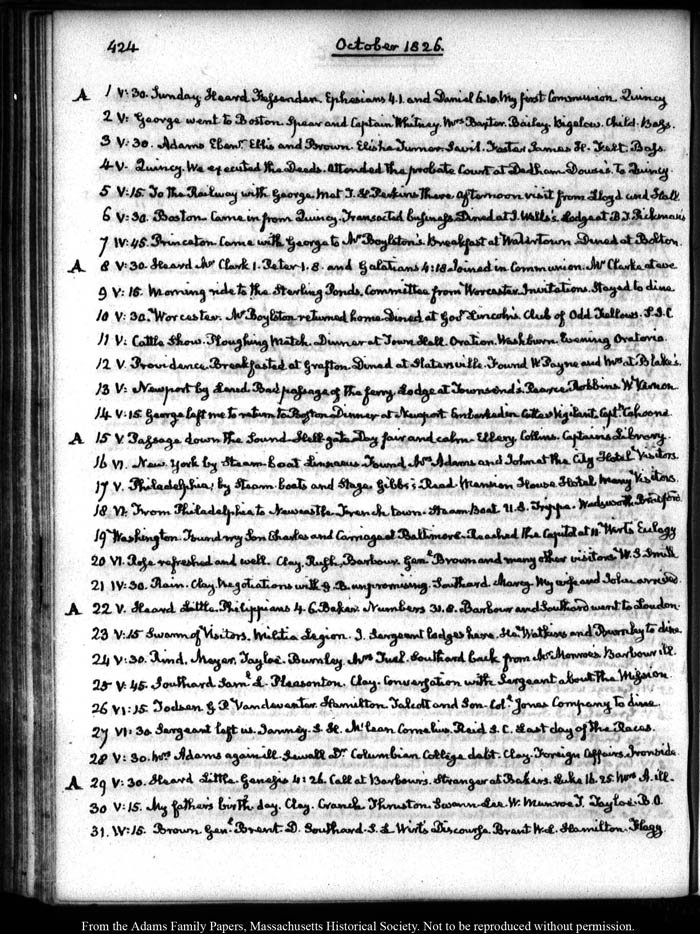 424
October 1826.
A 1 V:30. Sunday. Heard Fessenden. Ephesians 4.1. and Daniel 6.10. My first Communion. Quincy
2 V: George went to Boston. Spear and Captain Whitney. Mrs Baxter. Bailey. Bigelow. Child. Bass.
3 V:30. Adams Ebenr. Ellis and Brown. Elisha Turner. Savil. Foster. James H. Felt. Bass.
4 V. Quincy. We executed the Deeds. Attended the probate Court at Dedham. Dowse's. To Quincy.
5 V:15. To the Railway with George. Met T. H. Perkins there. Afternoon visit from Lloyd and Hall.
6 V:30. Boston. Came in from Quincy. Transacted business. Dined at I. Lodge at B.
7 IV:45. Princeton. Came with George to Mr Boylston's. Breakfast at Watertown. Dined at Bolton.
A 8 V:30. Heard Mr Clark 1. Peter 1. 8. and Galatians 4:18. Joined in Communion. Mr Clarke at eve
9 V:15. Morning ride to the Sterling Ponds. Committee from Worcester. Invitations. Stayed to dine
10 V:30. Worcester. Mr Boylston returned home. Dined at Govr Lincoln's. Club of Odd Fellows.
11 V: Cattle Show. Ploughing Match. Dinner at Town Hall. Oration. Washburn. Evening Oratorio.
12 V. Providence. Breakfasted at Grafton. Dined at Slatersville. Found W. Payne and Mrs at Blake's.
13 V: Newport by Land. Bad passage of the ferry. Lodge at Townsend's. Pearce. Robbins. W. Vernon.
14 V:15. George left me to return to Boston. Dinner at Newport. Embarked in Cutter Vigilant. Captn Cahoone.
A 15 V. Passage down the Sound. Hellgate. Day fair and calm. Ellery. Collins. Captains Library.
16 VI. New York by Steam-boat Linnaeus. Found Mrs Adams and John at the City Hotel. Visitors.
17 V. Philadelphia; by Steam boats and Stage. Gibbs's. Read. Mansion House Hotel. Many Visitors.
18 VI. From Philadelphia to Newcastle. French town. Steam Boat U.S. Trippe. Wadsworth.
19 Washington. Found my Son Charles and Carriage at Baltimore. Reached the Capitol at Wirt's Eulogy
20 VI. Rose refreshed and well. Clay. Rush. Barbour. Genl Brown and many other visitors. W. S. Smith
21 IV:30. Rain. Clay. Negotiations with G. B. unpromising. Southard. Marcy. My wife and John arrived.
A 22 V. Heard Little. Philippians 4. 6. Baker. Numbers 31. 8. Barbour and Southard went to Loudon.
23 V:15 Swarm of Visitors. Militia Legion. J. Sergeant lodges here. He Watkins and Burnley to dine.
24 V:30. Rind. Meyer. Tayloe. Burnley. Mrs Fuel. Southard back from Mr Monroe's. Barbour ill.
25 V:45. Southard Saml L. Pleasonton. Clay. Conversation with Sergeant about the Mission.
26 VI:15. Jodsen. G. P. Vandeventer. Hamilton. Talcott and Son. Coll Jones. Company to dine.
27 VI:30 Sergeant left us. Janney. S. H. McLean. Cornelius. Reid S. C. Last day of the Races.
28 V:30. Mrs Adams again ill. Sewall Dr. Columbian College debt. Clay. Foreign Affairs. Ironside.
A 29 V:30. Heard Little. Genesis 4:26. Call at Barbour's. Stranger at Baker's. Luke 16. 25. Mrs A. ill.
30 V:15. My father's birth day. Clay. Cranch. Thruston. Swann. Lee. W. Munroe T. Tayloe. B. O.
31. IV:15. Brown Genl Brent. D. Southard. S. L. Wirt's Discourse. Brent W. L. Hamilton. Flagg.
From the Adams Family Papers, Massachusetts Historical Society. Not to be reproduced without permission.